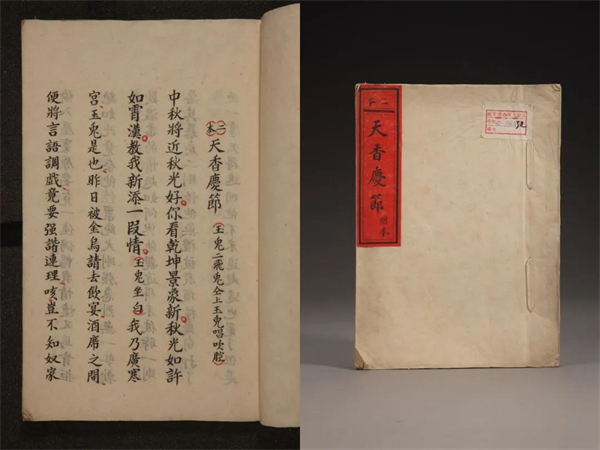 二本 天香慶節 (玉兔二飛兔仝上玉兔唱吹腔)
中秋將近秋光好。你看乾坤景象新。秋光如許
如霄漢教我新添一段情。(玉兔坐白)我乃廣寒
宮玉兔是也。昨日被金烏請去飲宴。酒席之間
便將言語調戲。竟要強諧連理。咳豈不知奴家
二下
天香慶節 總本